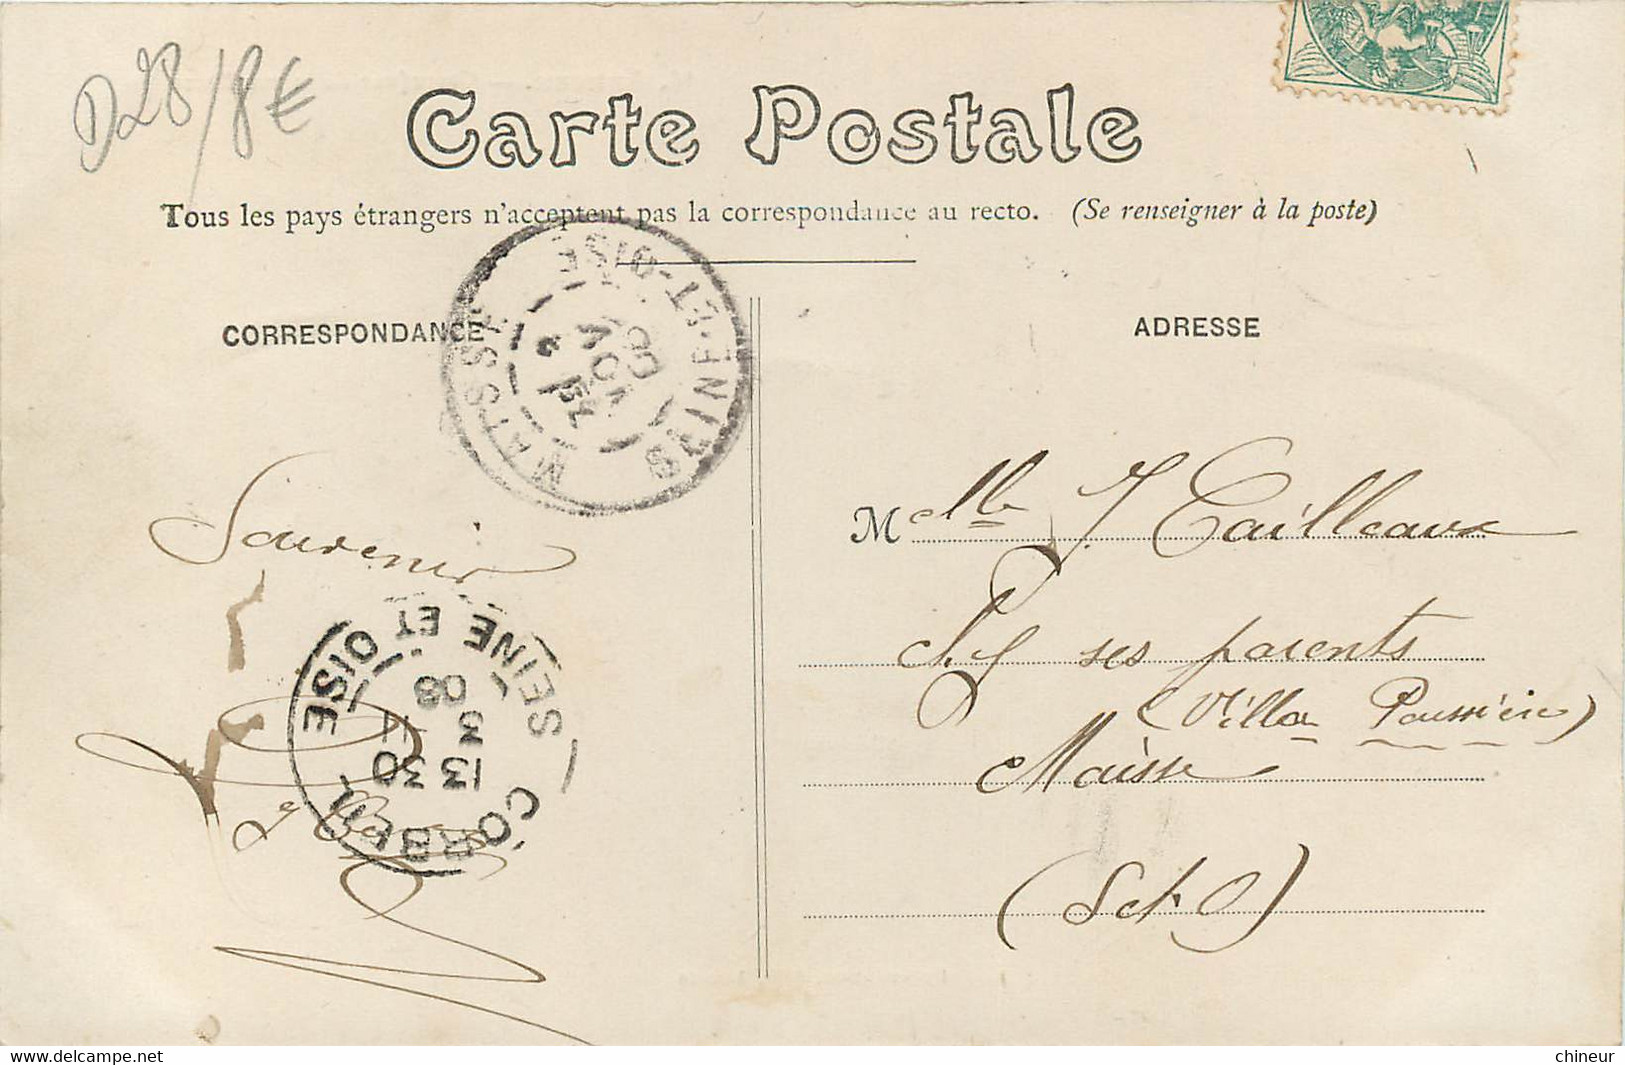 D28/8€
Carte Postale
Tous les pays étrangers n'acceptent pas la correspondance au recto. (Se renseigner à la poste)
CORRESPONDANCE
ADRESSE
MAISSE SEINE-ET-OISE
Souvenir
CORBEIL SEINE ET OISE
13 30
3
08
Melle J. Cailleaux
ch. ses parents
(Villa Poussière)
Maisse
(S et O)
delcampe.net
chineur